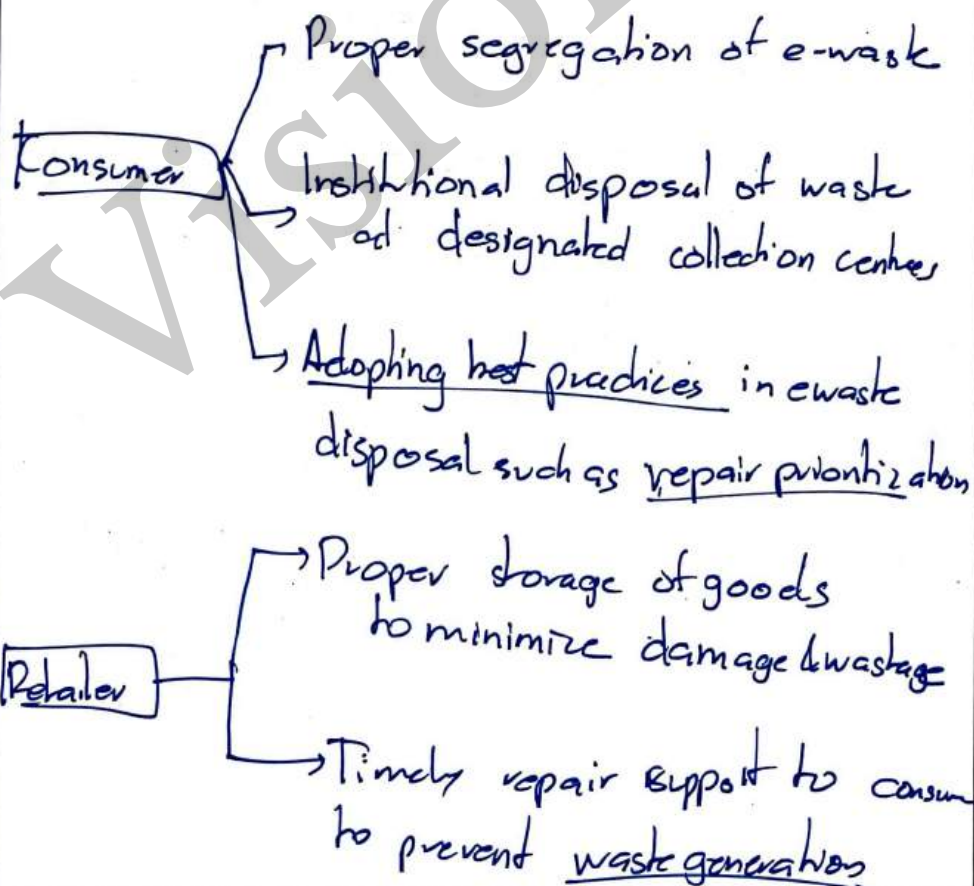 Vision
Proper segregation of e-waste
Consumer
Institutional disposal of waste
at designated collection centres
Adopting best practices in ewaste
disposal such as repair prioritization
Proper storage of goods
to minimize damage & wastage
Retailer
Timely repair support to consum
to prevent waste generation